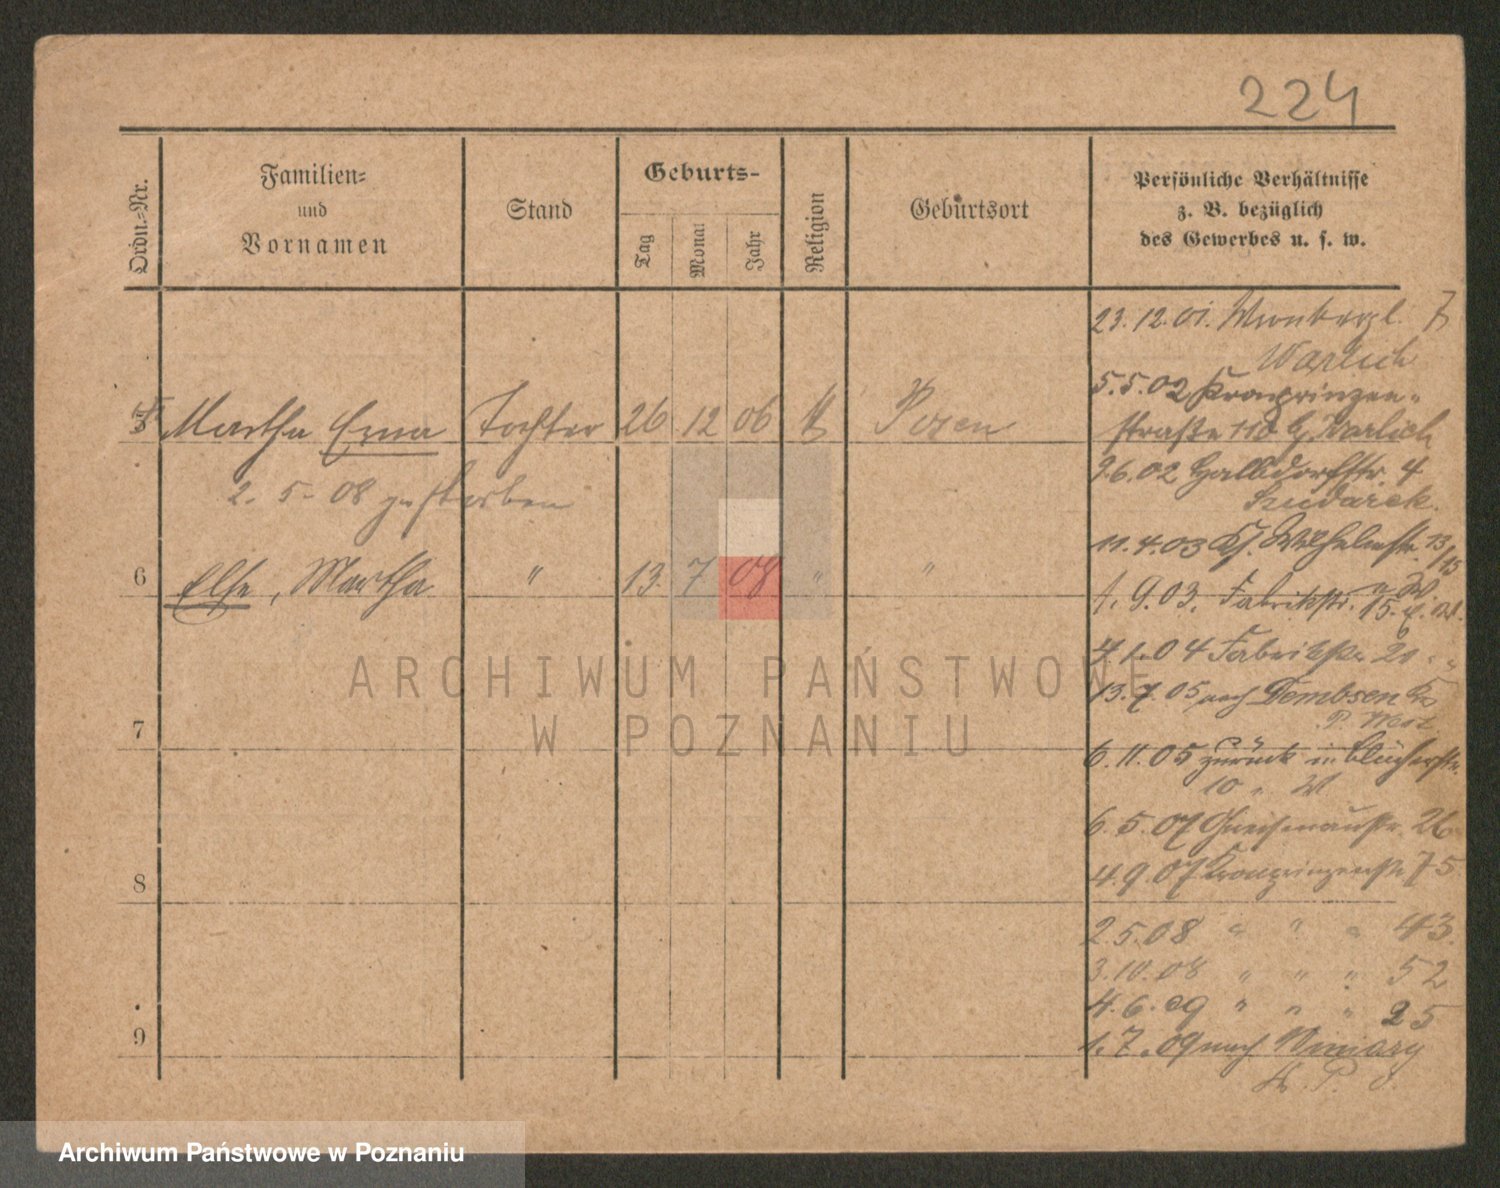 224
Ordn.-Nr.
Familien-
und
Vornamen
Stand
Geburts-
Tag
Monat
Jahr
Religion
Geburtsort
Persönliche Verhältnisse
z. B. bezüglich
des Gewerbes u. s. w.
5 Martha Erna Tochter 26 12 06 Posen
2. 5. 08 gestorben
6 Else, Martha " 13. 7 08 " "
7
8
9
23. 12. 01.
Warlich
5. 5. 02 Kronprinzen-
straße 110 b. Warlich
9. 6. 02 Halbdorfstr. 4
11. 4. 03 Wilhelmstr. 13/15
1. 9. 03. Fabrikstr. 15.
4. 1. 04 Fabrikstr. 20 " "
13. 7. 05 nach Dembsen Kr
P. West
6. 11. 05 zurück in Blücherstr.
10
6. 5. 07 Gneisenaustr. 26
4. 9. 07 Kronprinzenstr 75
2. 5. 08 " " " 43.
3. 10. 08 " " " 52
4. 6. 09 " " " 25
1. 7. 09 nach Winiary
K. P. O.
ARCHIWUM PAŃSTWOWE
W POZNANIU
Archiwum Państwowe w Poznaniu